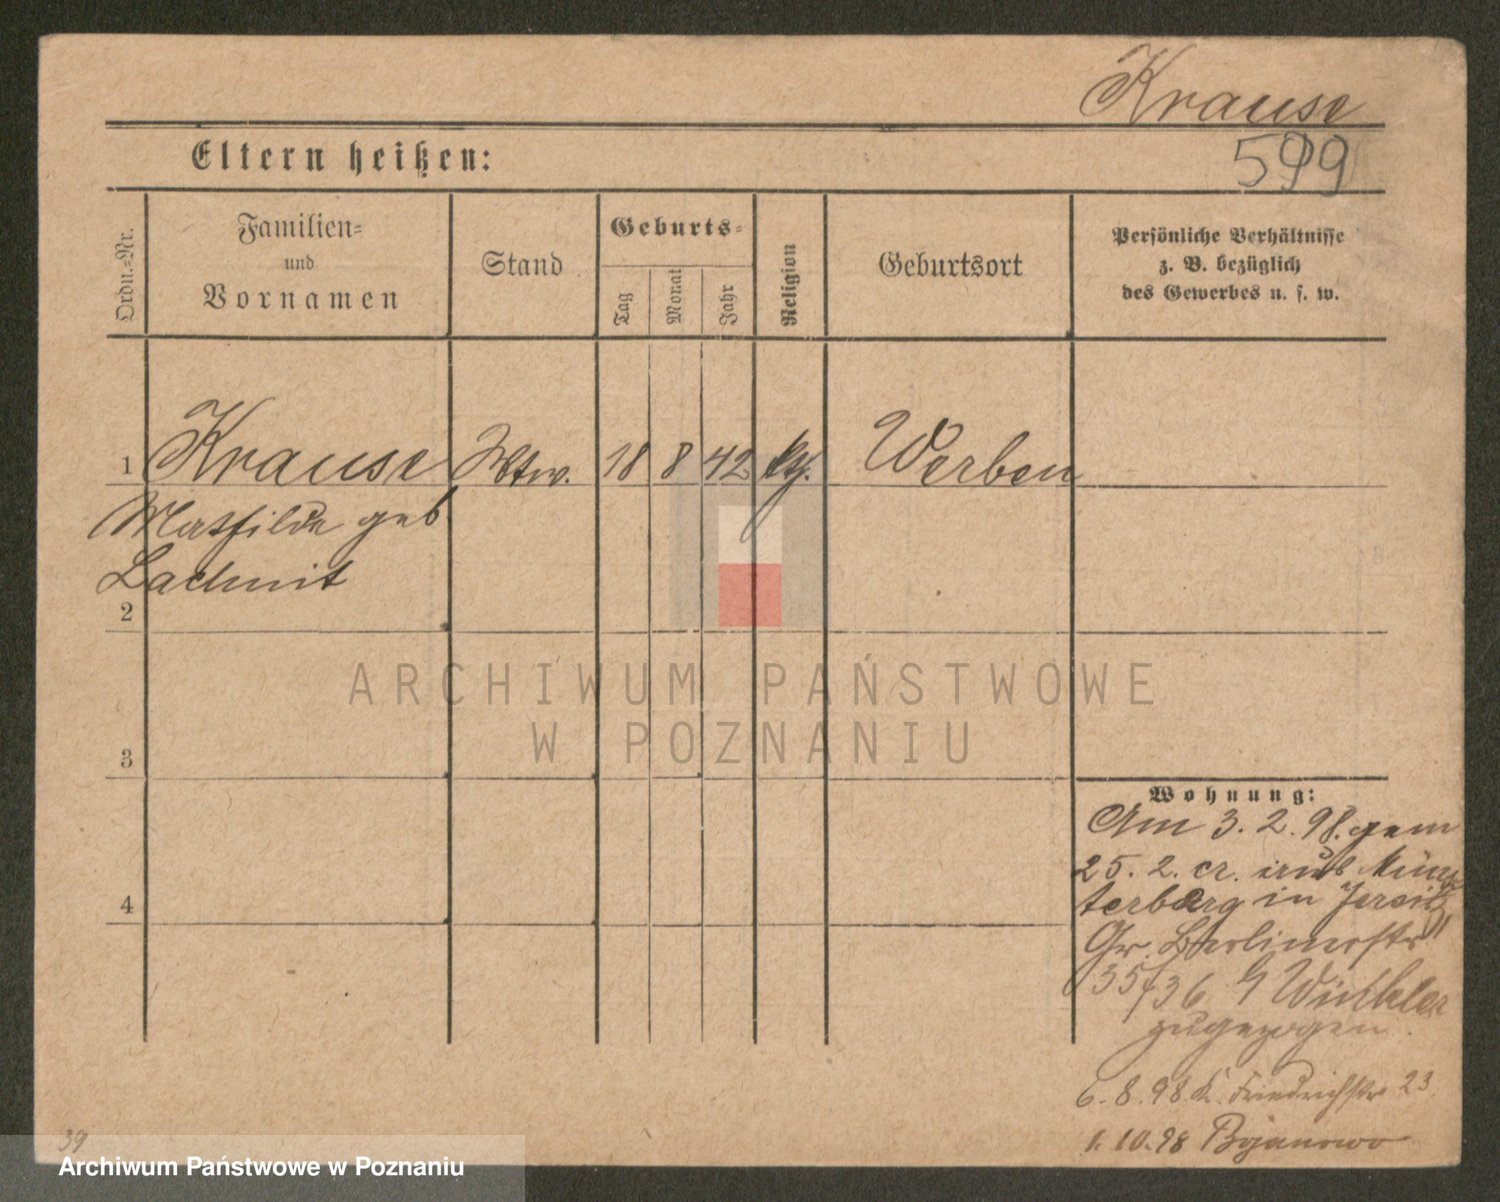 Krause
Eltern heißen:
599
Ordn.-Nr.
Familien-
und
Vornamen
Stand
Geburts-
Tag
Monat
Jahr
Religion
Geburtsort
Persönliche Verhältnisse
z. B. bezüglich
des Gewerbes u. s. w.
1 Krause Wtw. 18 8 42 kth. Werben
Mathilde geb
Lachmit
2
3
4
Wohnung:
Am 3. 2. 98. gem
25. 2. cr. aus Müns
terberg in Jersitz
Gr. Berlinerstr
35/36
zugezogen.
6. 8. 98 K. Friedrichstr 23
1. 10. 98 Bojanowo
39
ARCHIWUM PAŃSTWOWE
W POZNANIU
Archiwum Państwowe w Poznaniu